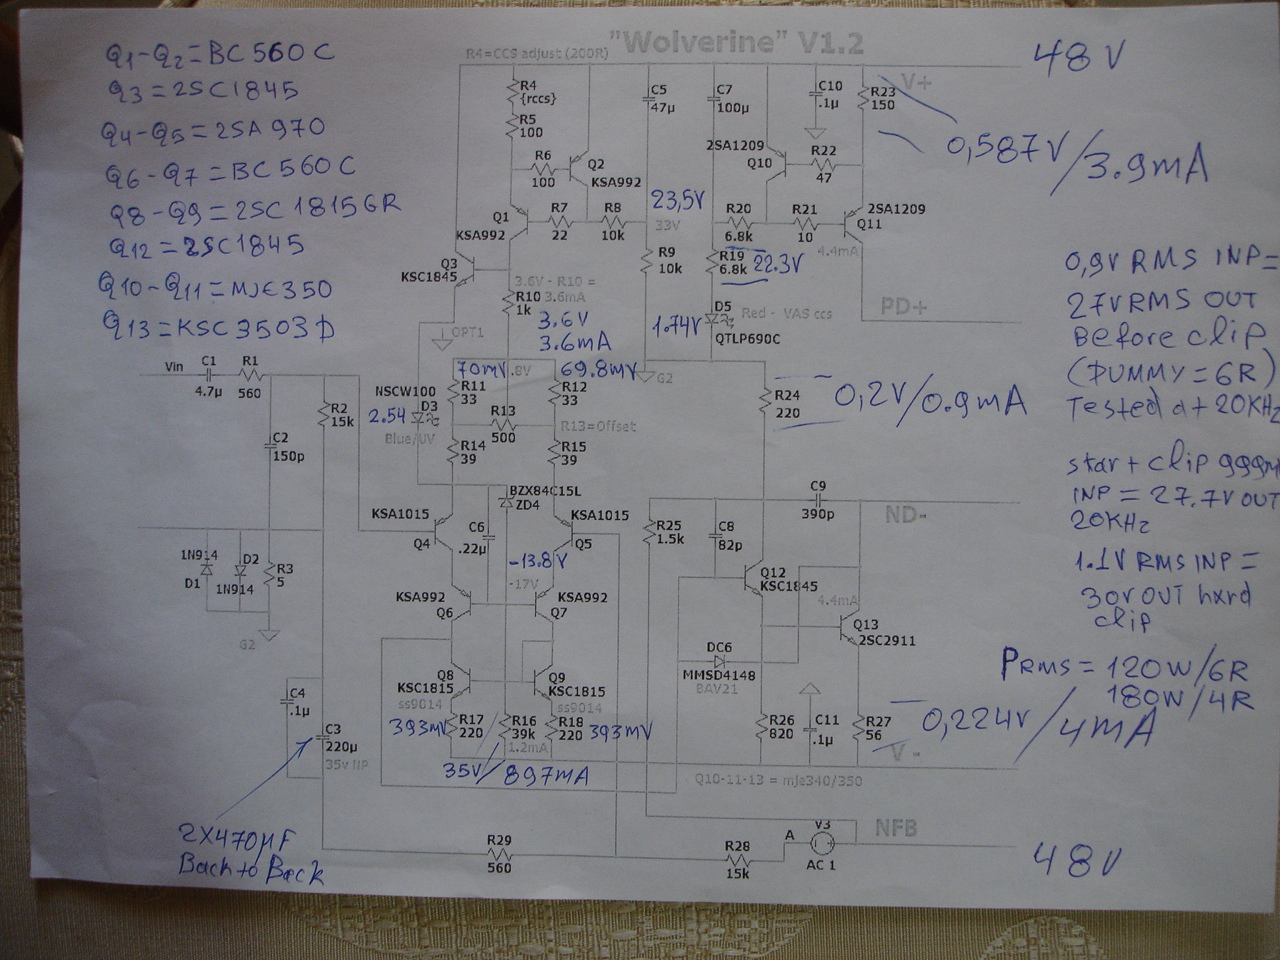 "Wolverine" V1.2
R4=CCS adjust (200R)
Q1-Q2=BC560C
Q3=2SC1845
Q4-Q5=2SA970
Q6-Q7=BC560C
Q8-Q9=2SC1815GR
Q12=2SC1845
Q10-Q11=MJE350
Q13=KSC3503D
48V
V+
R4
{rccs}
R5
100
R6
100
Q2
KSA992
C5
47µ
C7
100µ
C10
.1µ
R23
150
0,587V/3.9mA
2SA1209
Q10
R22
47
Q1
KSA992
R7
22
R8
10k
23,5V
33V
R20
6.8k
R21
10
2SA1209
Q11
4.4mA
Q3
KSC1845
R9
10k
R19
6.8k
22.3V
3.6V - R10 =
3.6mA
R10
1k
3.6V
3.6mA
OPT1
1.74V
D5
Red - VAS ccs
QTLP690C
PD+
0,9V RMS INP=
27VRMS OUT
Before clip
(DUMMY=6R)
Tested at 20KHz
start clip 999m
INP=27.7V OUT
20KHz
1.1V RMS INP=
30V OUT hard
clip
PRMS=120W/6R
180W/4R
Vin
C1
4.7µ
R1
560
70mV
.8V
69.8mV
G2
R11
33
R12
33
NSCW100
2.54
D3
Blue/UV
R13
500
R13=Offset
R24
220
0,2V/0.9mA
R2
15k
C2
150p
R14
39
R15
39
BZX84C15L
ZD4
KSA1015
Q4
C6
.22µ
KSA1015
Q5
-13.8V
-17V
R25
1.5k
C8
82p
C9
390p
ND-
1N914
D1
D2
1N914
R3
5
G2
KSA992
Q6
KSA992
Q7
Q12
KSC1845
4.4mA
Q13
2SC2911
Q8
KSC1815
ss9014
Q9
KSC1815
ss9014
DC6
MMSD4148
BAV21
C4
.1µ
C3
220µ
35v NP
393mV
R17
220
R16
39k
1.2mA
R18
220
393mV
R26
820
C11
.1µ
R27
56
0,224V/4mA
V-
35V/897mA
Q10-11-13 = mje340/350
2X470µF
Back to Back
R29
560
R28
15k
A
V3
AC 1
NFB
48V